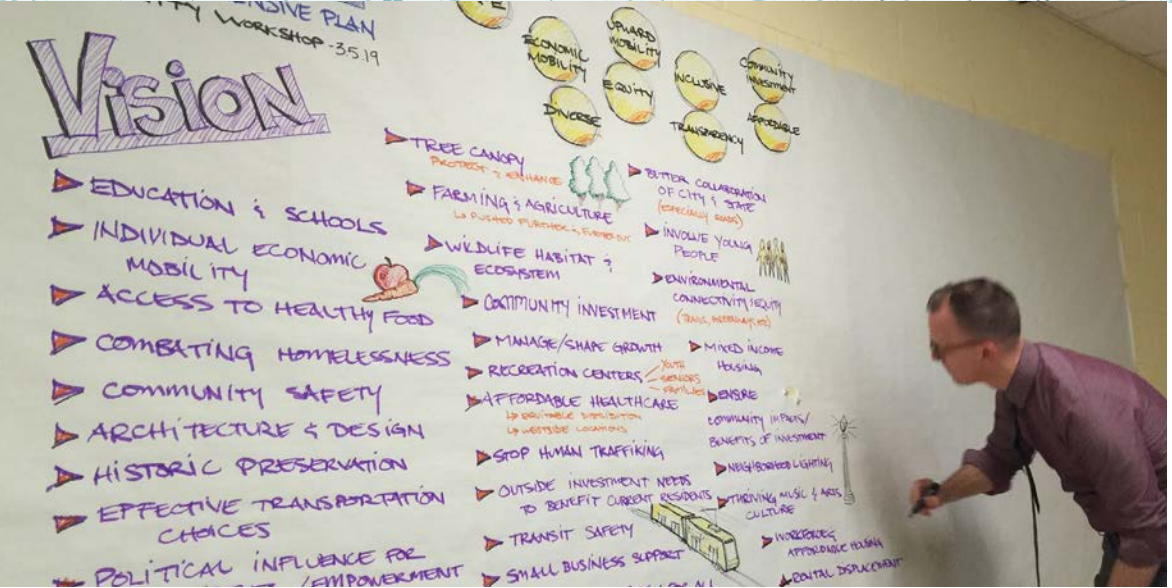 PLAN
WORKSHOP - 3.5.19
Vision
ECONOMIC
MOBILITY
UPWARD
MOBILITY
EQUITY
DIVERSE
INCLUSIVE
TRANSPARENCY
COMMUNITY
INVESTMENT
AFFORDABLE
EDUCATION & SCHOOLS
INDIVIDUAL ECONOMIC
MOBILITY
ACCESS TO HEALTHY FOOD
COMBATING HOMELESSNESS
COMMUNITY SAFETY
ARCHITECTURE & DESIGN
HISTORIC PRESERVATION
EFFECTIVE TRANSPORTATION
CHOICES
POLITICAL INFLUENCE FOR
/EMPOWERMENT
TREE CANOPY
PROTECT & ENHANCE
FARMING & AGRICULTURE
PUSHED FURTHER & FURTHER OUT
WILDLIFE HABITAT &
ECOSYSTEM
COMMUNITY INVESTMENT
MANAGE/SHAPE GROWTH
RECREATION CENTERS
YOUTH
SENIORS
FAMILIES
AFFORDABLE HEALTHCARE
EQUITABLE DISTRIBUTION
WESTSIDE LOCATIONS
STOP HUMAN TRAFFIKING
OUTSIDE INVESTMENT NEEDS
TO BENEFIT CURRENT RESIDENTS
TRANSIT SAFETY
SMALL BUSINESS SUPPORT
FOR ALL
BETTER COLLABORATION
OF CITY & STATE
(ESPECIALLY ROADS)
INVOLVE YOUNG
PEOPLE
ENVIRONMENTAL
CONNECTIVITY/EQUITY
(TRAILS, GREENWAYS, ETC)
MIXED INCOME
HOUSING
ENSURE
COMMUNITY IMPACTS/
BENEFITS OF INVESTMENT
NEIGHBORHOOD LIGHTING
THRIVING MUSIC & ARTS
CULTURE
WORKFORCE &
AFFORDABLE HOUSING
RENTAL DISPLACEMENT